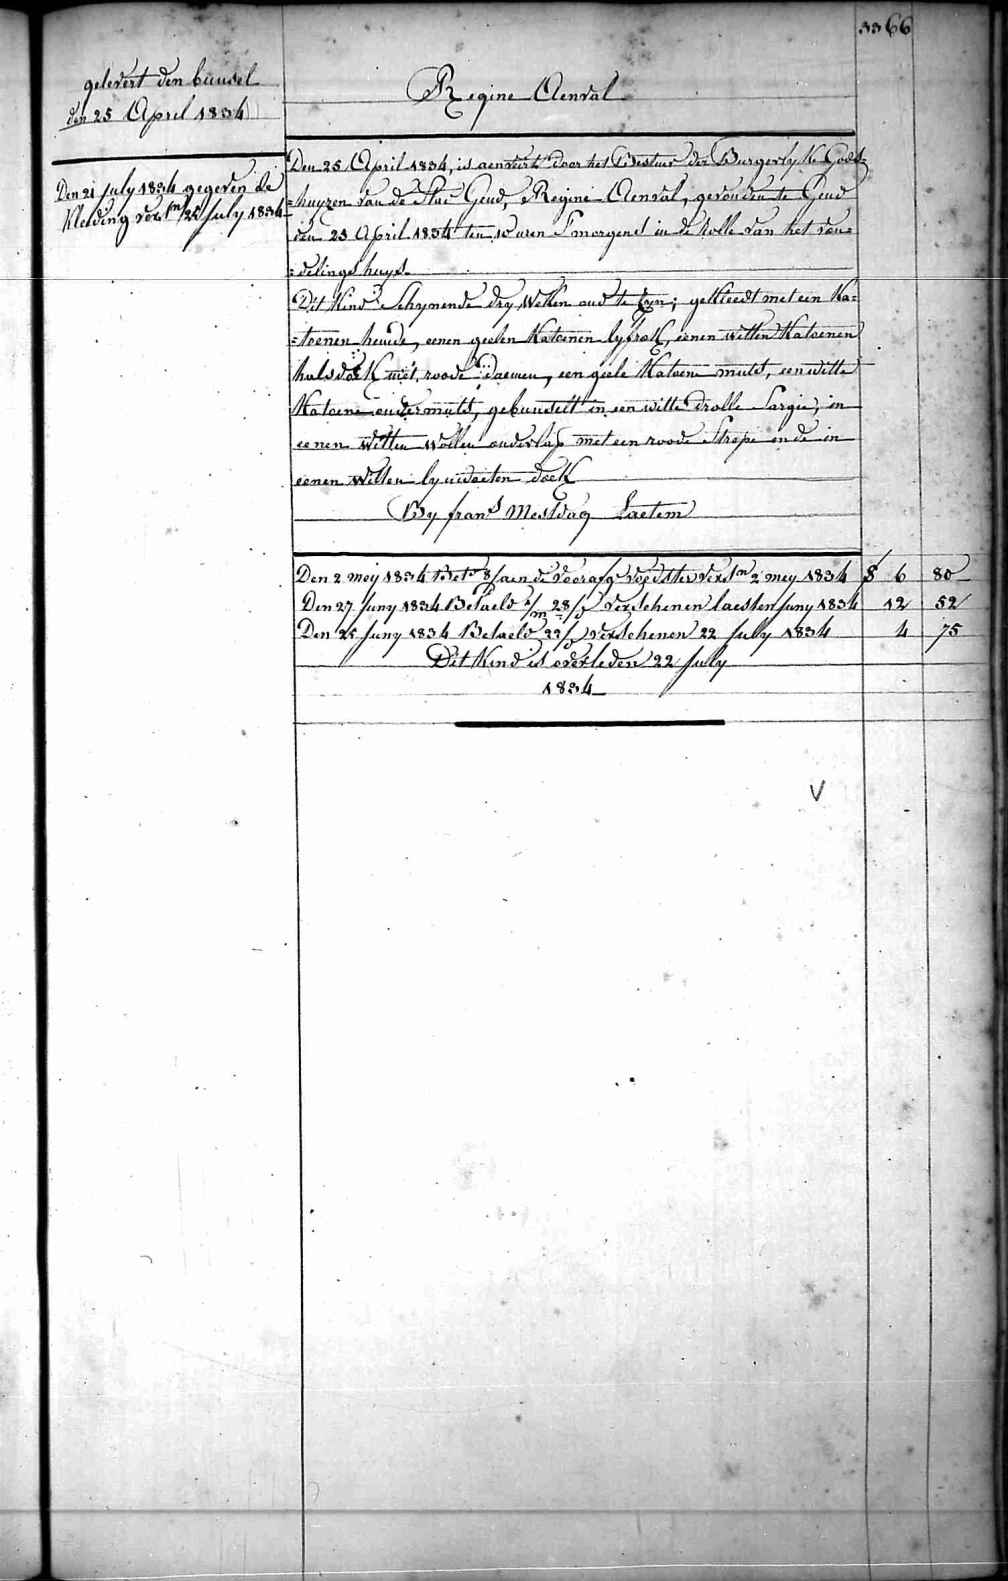 3366
gelevert den bunsel
den 25 April 1834
Regine Aenval
Den 21 july 1834 gegeven de
Kleeding verst.n 22 july 1834
Den 25 April 1834, is aenveirt door het Bestuer der Burgerlyke Gods=
=huyzen van de Stad Gend, Regine Aenval, gevonden te Gend
den 23 April 1834 ten uren S'morgens in de Rolle van het von=
=delings huys.
Dit Kind Schynende dry Weken oud te Zyn; gekleedt met een Ka=
=toenen hemde, eenen geelen Katoenen lyfrok, eenen witten Katoenen
halsdoek met roode daemen, een geele Katoene muts, een witte
Katoene onder muts, gebunselt in een witte drolle Sargie, in
eenen witten wollen onderlap met een roode Strepe en de in
eenen witten lynwaeten doek
By frans Mestdag Laetem
Den 2 mey 1834 Bet.n 8/ aen de voorafg.e voedster verst.n 2 mey 1834 $ 6 80
Den 27 juny 1834 Betaeld 1/m 28/d verschenen laesten juny 1834 12 52
Den 25 juny 1834 Betaeld 22/d verschenen 22 july 1834 4 75
Dit Kind is overleden 22 july
1834
V